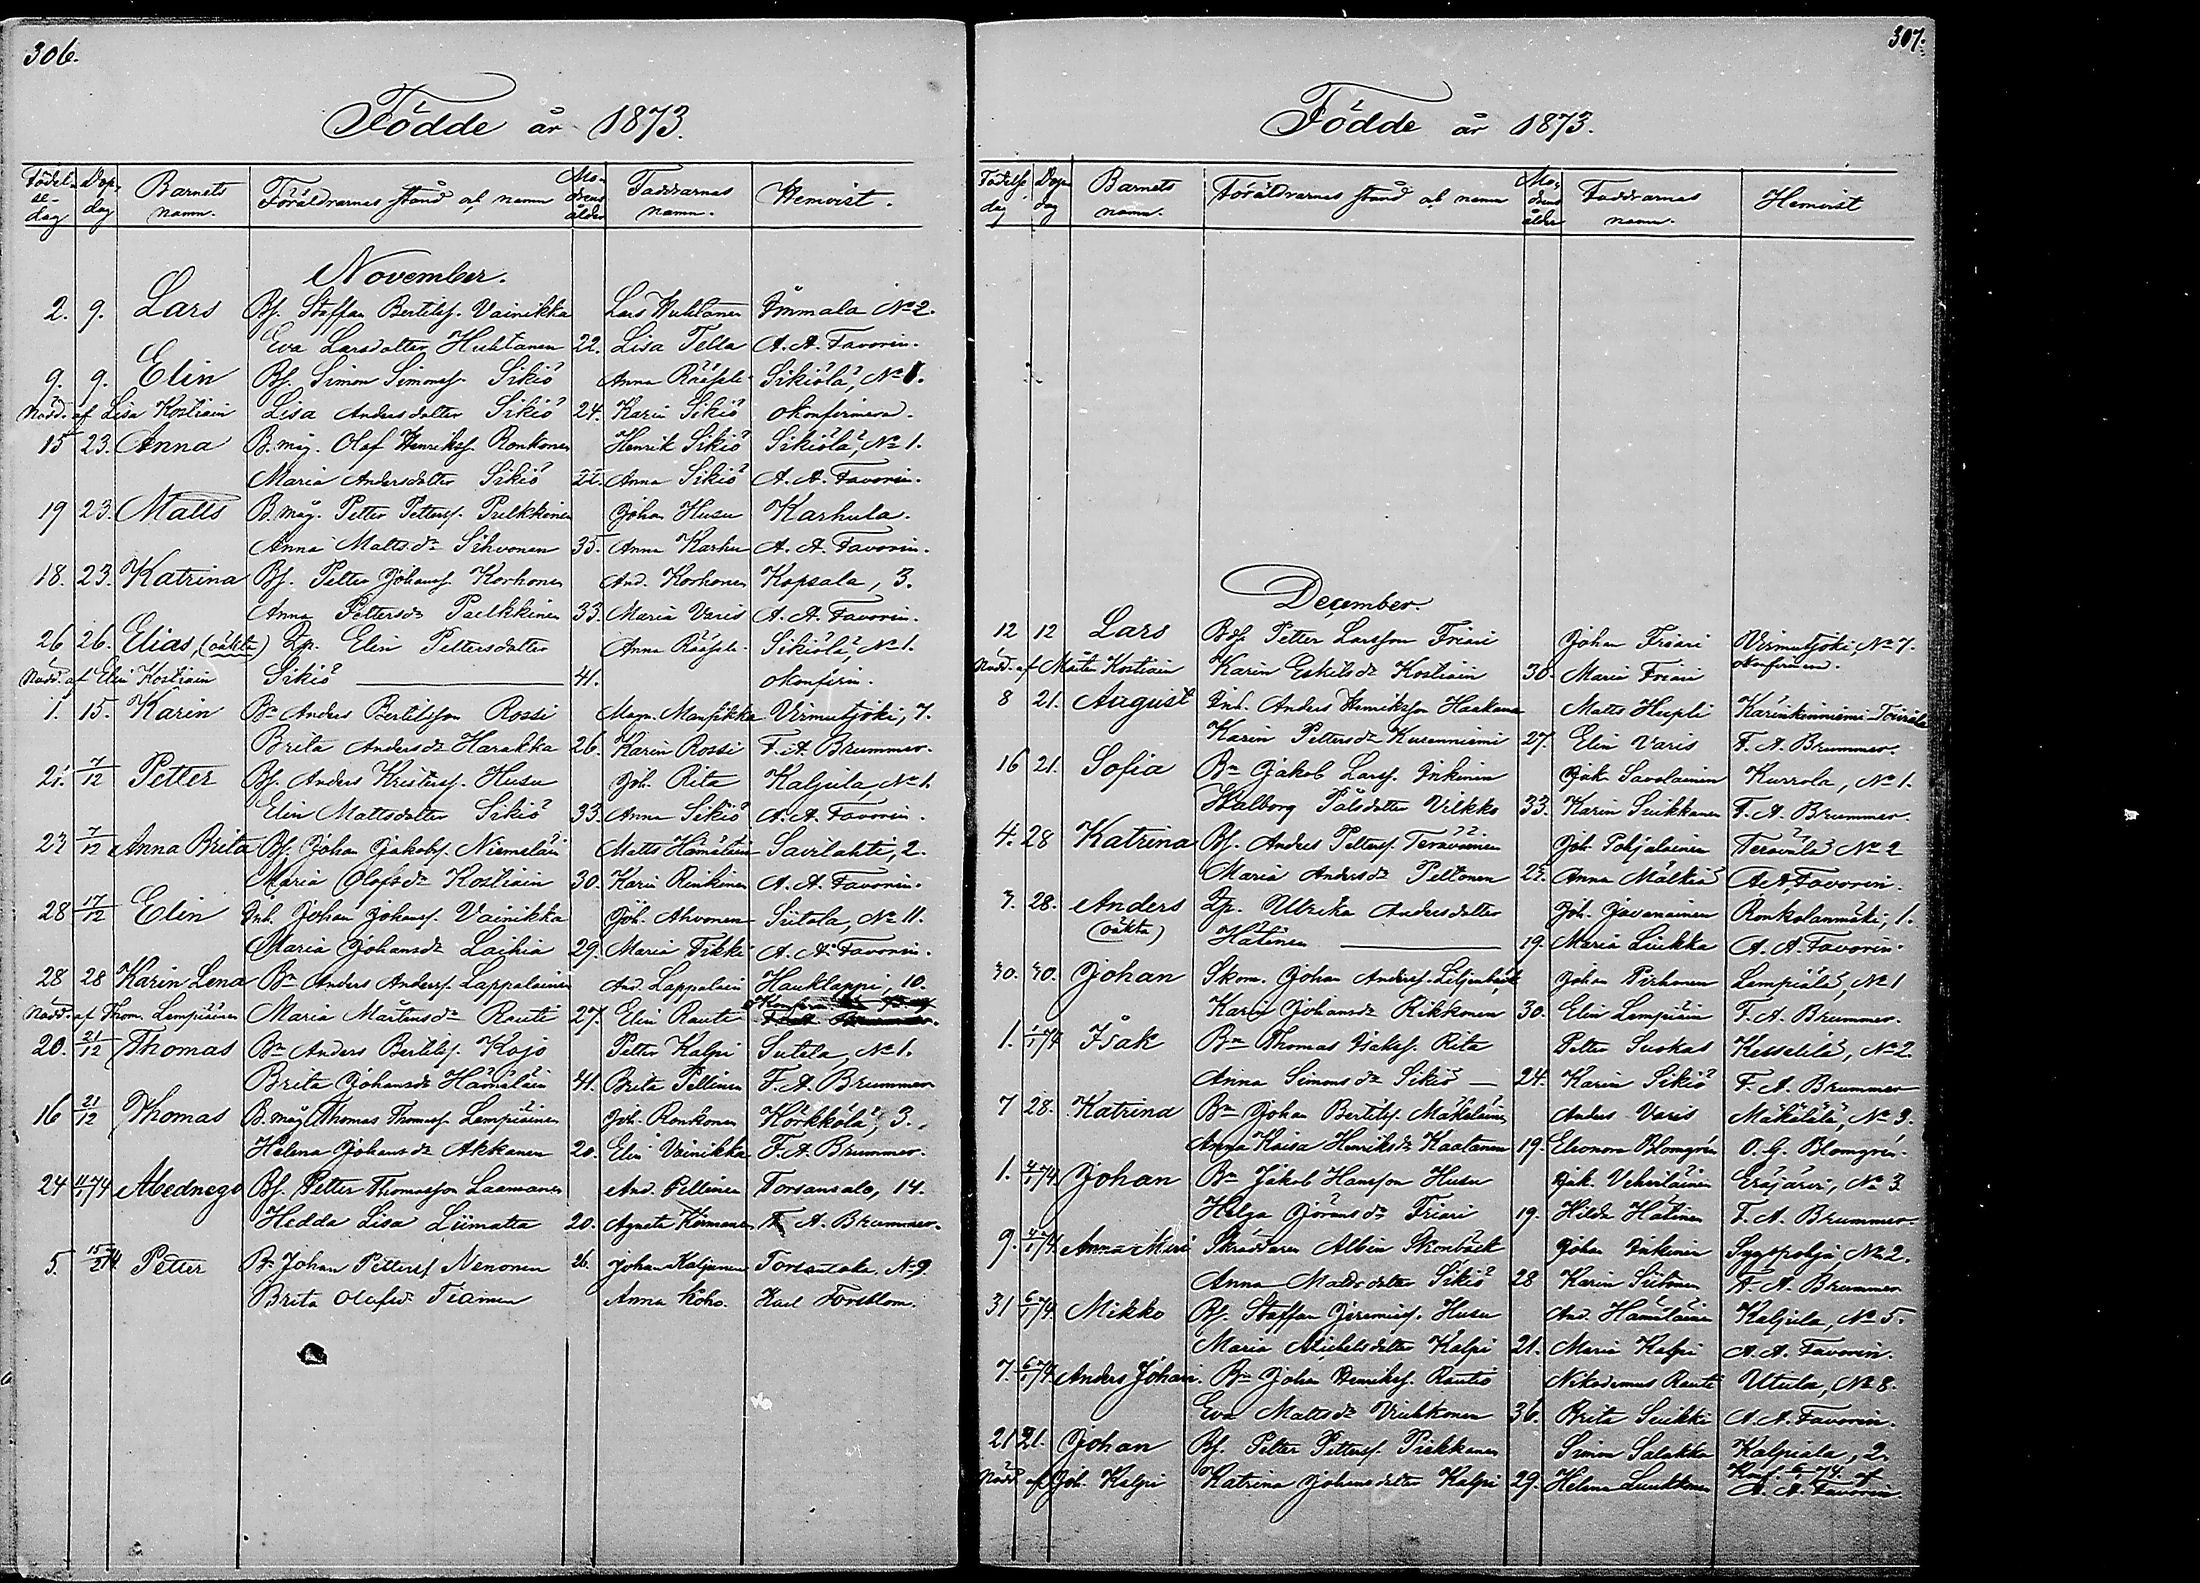 306.
Födde år 1873.
Födel- Dop- Barnets Föräldrarnes stånd och namn Mo- Faddrarnes Hemvist.
se- dag namn. drens namn.
dag ålder
November.
2. 9. Lars Bs. Staffan Bertilss. Vainikka Lars Huhtanen Immala No 2.
Eva Larsdotter Huhtanen 22. Lisa Tella A. A. Favorin.
9. 9. Elin Bs. Simon Simonss. Sikiö Anna Rääsele Sikiölä, No 1.
Nödd. af Lisa Kostiain Lisa Andersdotter Sikiö 24. Karin Sikiö okonfirmerad.
15 23. Anna B. måg. Olof Henrikss. Ronkonen Henrik Sikiö Sikiölä, No 1.
Maria Andersdotter Sikiö 22. Anna Sikiö A. A. Favorin.
19 23. Matts B. måg. Petter Petterss. Pulkkinen Johan Husu Karhula.
Anna Mattsdr Sihvonen 35. Anna Karhu A. A. Favorin.
18. 23. Katrina Bs. Petter Johanss. Korhonen And. Korhonen Kopsala, 3.
Anna Pettersdr Pulkkinen 33. Maria Varis A. A. Favorin.
26 26. Elias, (oäkta) Elin Pettersdotter Anna Rääsele Sikiölä, No 1.
Nödd. af Elin Kostiain Sikiö 41. okonfirm.
1. 15. Karin Bn Anders Bertilsson Rossi Magn. Mansikka Virmutjoki, 7.
Brita Andersdr Harakka 26. Karin Rossi F. A. Brummer.
21. 7/12 Petter Bs. Anders Kristerss. Husu Joh. Rita Kaljula, No 1.
Elin Mattsdotter Sikiö 33. Anna Sikiö A. A. Favorin.
22 7/12 Anna Brita Bs. Johan Jakobs. Niemeläin Matts Hämäläin Savilahti, 2.
Maria Olofsdr Kostiain 30. Karin Rinkinen A. A. Favorin.
28 17/12 Elin Inh. Johan Johanss. Vainikka Joh. Ahvonen Siitola, No 11.
Maria Johansdr Laihia 29. Maria Tikki A. A. Favorin.
28 28 Karin Lena Bn Anders Anderss. Lappalainen And. Lappalain Hauklappi, 10.
Nödd. af Thom. Lempiäinen Maria Mårtensdr Rauti 27. Elin Rauti
20. 21/12 Thomas Bn Anders Bertilss. Kojo Petter Kalpi Sutela, No 1.
Brita Johansdr Hämäläin 41. Brita Pellinen F. A. Brummer
16 21/12 Thomas B. måg Thomas Thomass. Lempiäinen Joh. Ronkonen Körkkölä, 3.
Helena Johansdr Akkanen 20. Elin Vainikka F. A. Brummer.
24 11/1 74 Abednego Bs. Petter Thomasson Laamanen And. Pellinen Torsansalo, 14.
Hedda Lisa Liimatta 20. Agneta Kärmanen F. A. Brummer.
5. 15/3 74 Petter Bn Johan Petterss. Nenonen 26. Johan Kaljunen Torsansalo. No 9.
Brita Olofsd. Tiainen Anna Koho. Karl Forsblom.
307.
Födde år 1873.
Födelse Dop Barnets Föräldrarnes stånd och namn Mo- Faddrarnes Hemvist
dag dag namn. drens namn.
ålder
December.
12 12 Lars Bds. Petter Larsson Friari Johan Friari Virmutjoki, No 7.
Nödd. af Mårten Kostiain Karin Eskilsdr Kostiain 30. Maria Friari okonfirmerad.
8 21. August Inh. Anders Henriksson Haakana Matts Hupli Karinkanniemi
Karin Pettersdr Kurenniemi 27. Elin Varis F. A. Brummer.
16 21. Sofia Bn Jakob Larss. Inkinen Jak. Savolainen Kurrola, No 1.
Walborg Pålsdotter Vilkko 33. Karin Suikkanen F. A. Brummer.
4. 28 Katrina Bs. Anders Petterss. Teräväinen Joh. Pohjalainen Terävälä No 2
Maria Andersdr Peltonen 22. Anna Mälkiä A. A. Favorin.
3. 28. Anders Ulrika Andersdotter Joh. Javanainen Ronkolanmäki, 1.
(oäkta) Hätinen 19. Maria Liukka A. A. Favorin.
30. 30. Johan Skom. Johan Anderss. Liljenbäck Johan Pirhonen Lempiälä, No 1
Karin Johansdr Rikkonen 30. Elin Lempiäin F. A. Brummer.
1. 1/1 74 Isak Bn Thomas Isakss. Rita Petter Suokas Kesselilä, No 2.
Anna Simonsdr Sikiö 24. Karin Sikiö F. A. Brummer
7 28. Katrina Bn Johan Bertilss. Mäkeläinen Anders Varis Mäkälälä, No 3.
Anna Kaisa Henriksdr Kaatanen 19. Eleonora Blomgrén O. G. Blomgrén.
1. 4/1 74. Johan Bn Jakob Hansson Husu Jak. Vehviläinen Eräjärvi, No 3.
Helga Göransdr Friari 19. Hilda Hätinen F. A. Brummer.
9. 4/1 74. Anna Mari Skräddaren Albin Skonbäck Johan Inkinen Syyspohja, No 2.
Anna Mattsdotter Sikiö 28 Karin Siitonen F. A. Brummer
31 6/1 74. Mikko Bs. Staffan Jeremiass. Husu And. Hämäläinen Kaljula, No 5.
Maria Michelsdotter Kalpi 21. Maria Kalpi A. A. Favorin.
7. 6/1 74. Anders Johan. Bn Johan Henrikss. Rautio Nikodemus Rauti Utula, No 8.
Eva Mattsdr Viuhkonen 36. Brita Suikki A. A. Favorin.
21 21. Johan Bs. Petter Petterss. Piekkanen Simon Salakka Kalpiala, 2.
Nödd. af Joh. Kalpi Katrina Johansdotter Kalpi 29. Helena Luukkonen Konf. 6/1 74. af
A. A. Favorin.